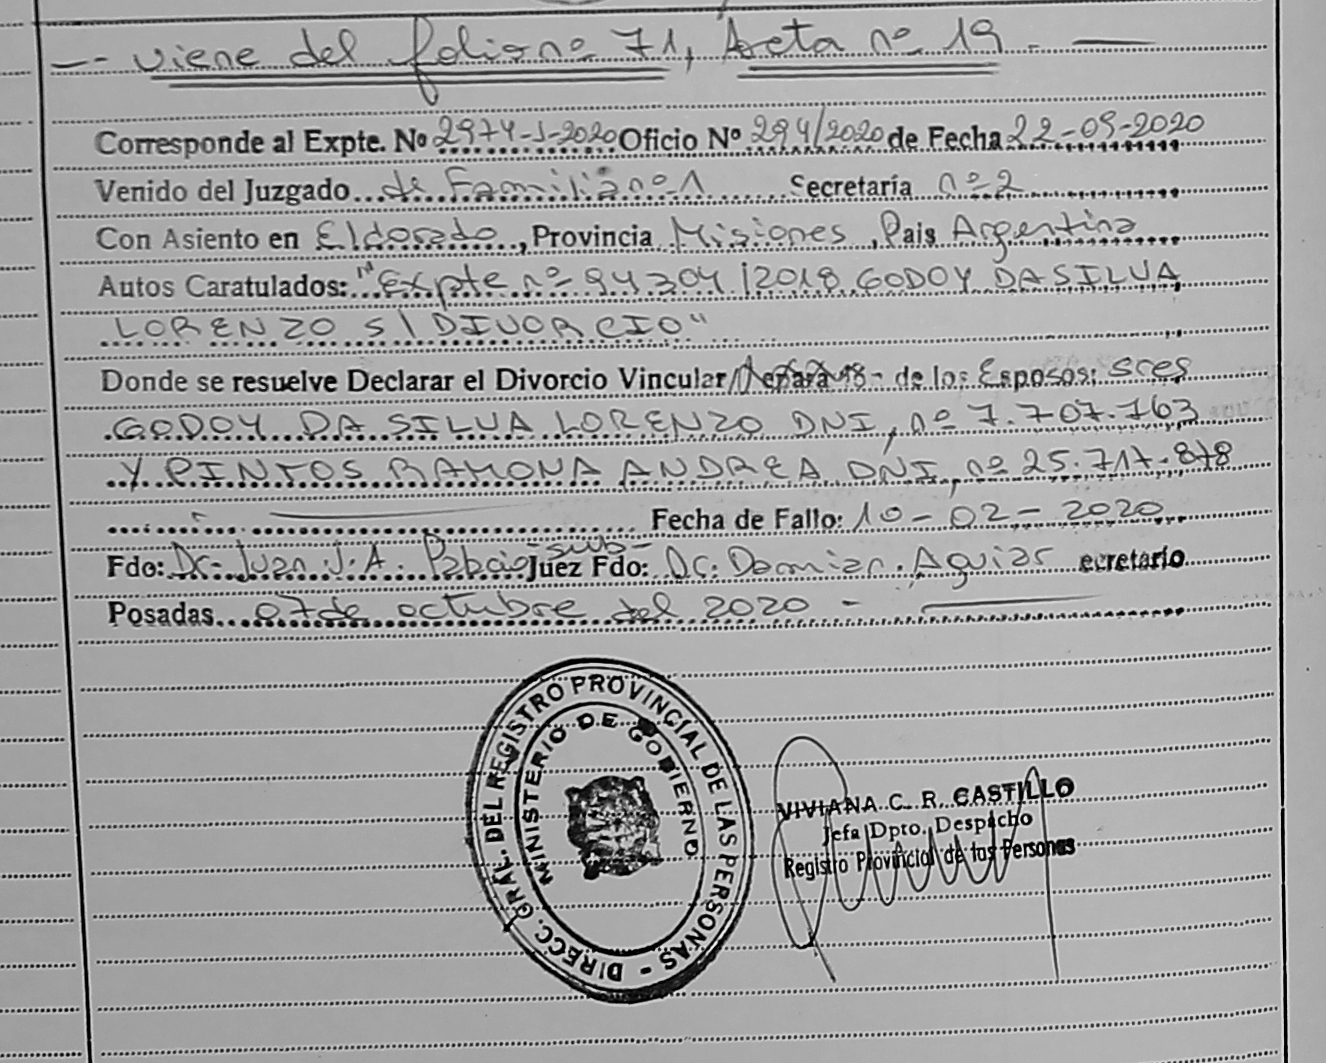 -- viene del folio nº 71, Acta nº 19. --
Corresponde al Expte. Nº 2974-J-2020 Oficio Nº 294/2020 de Fecha 22-09-2020
Venido del Juzgado de Familia nº 1 Secretaría nº 2
Con Asiento en Eldorado, Provincia Misiones, Pais Argentina
Autos Caratulados: "Expte nº 94304/2018 GODOY DA SILVA
LORENZO S/ DIVORCIO"
Donde se resuelve Declarar el Divorcio Vincular/ - de los Esposos: sres
GODOY DA SILVA LORENZO DNI, nº 7.707.763
Y PINTOS RAMONA ANDREA DNI, nº 25.717.878
Fecha de Fallo: 10-02-2020
Fdo: Dr. Juan J. A. Juez Fdo: Dr. Damian Aguiar -sub- ecretario
Posadas 07 de octubre del 2020 -
DIRECC. GRAL. DEL REGISTRO PROVINCIAL DE LAS PERSONAS -
MINISTERIO DE GOBIERNO
VIVIANA C. R. CASTILLO
Jefa Dpto. Despacho
Registro Provincial de las Personas